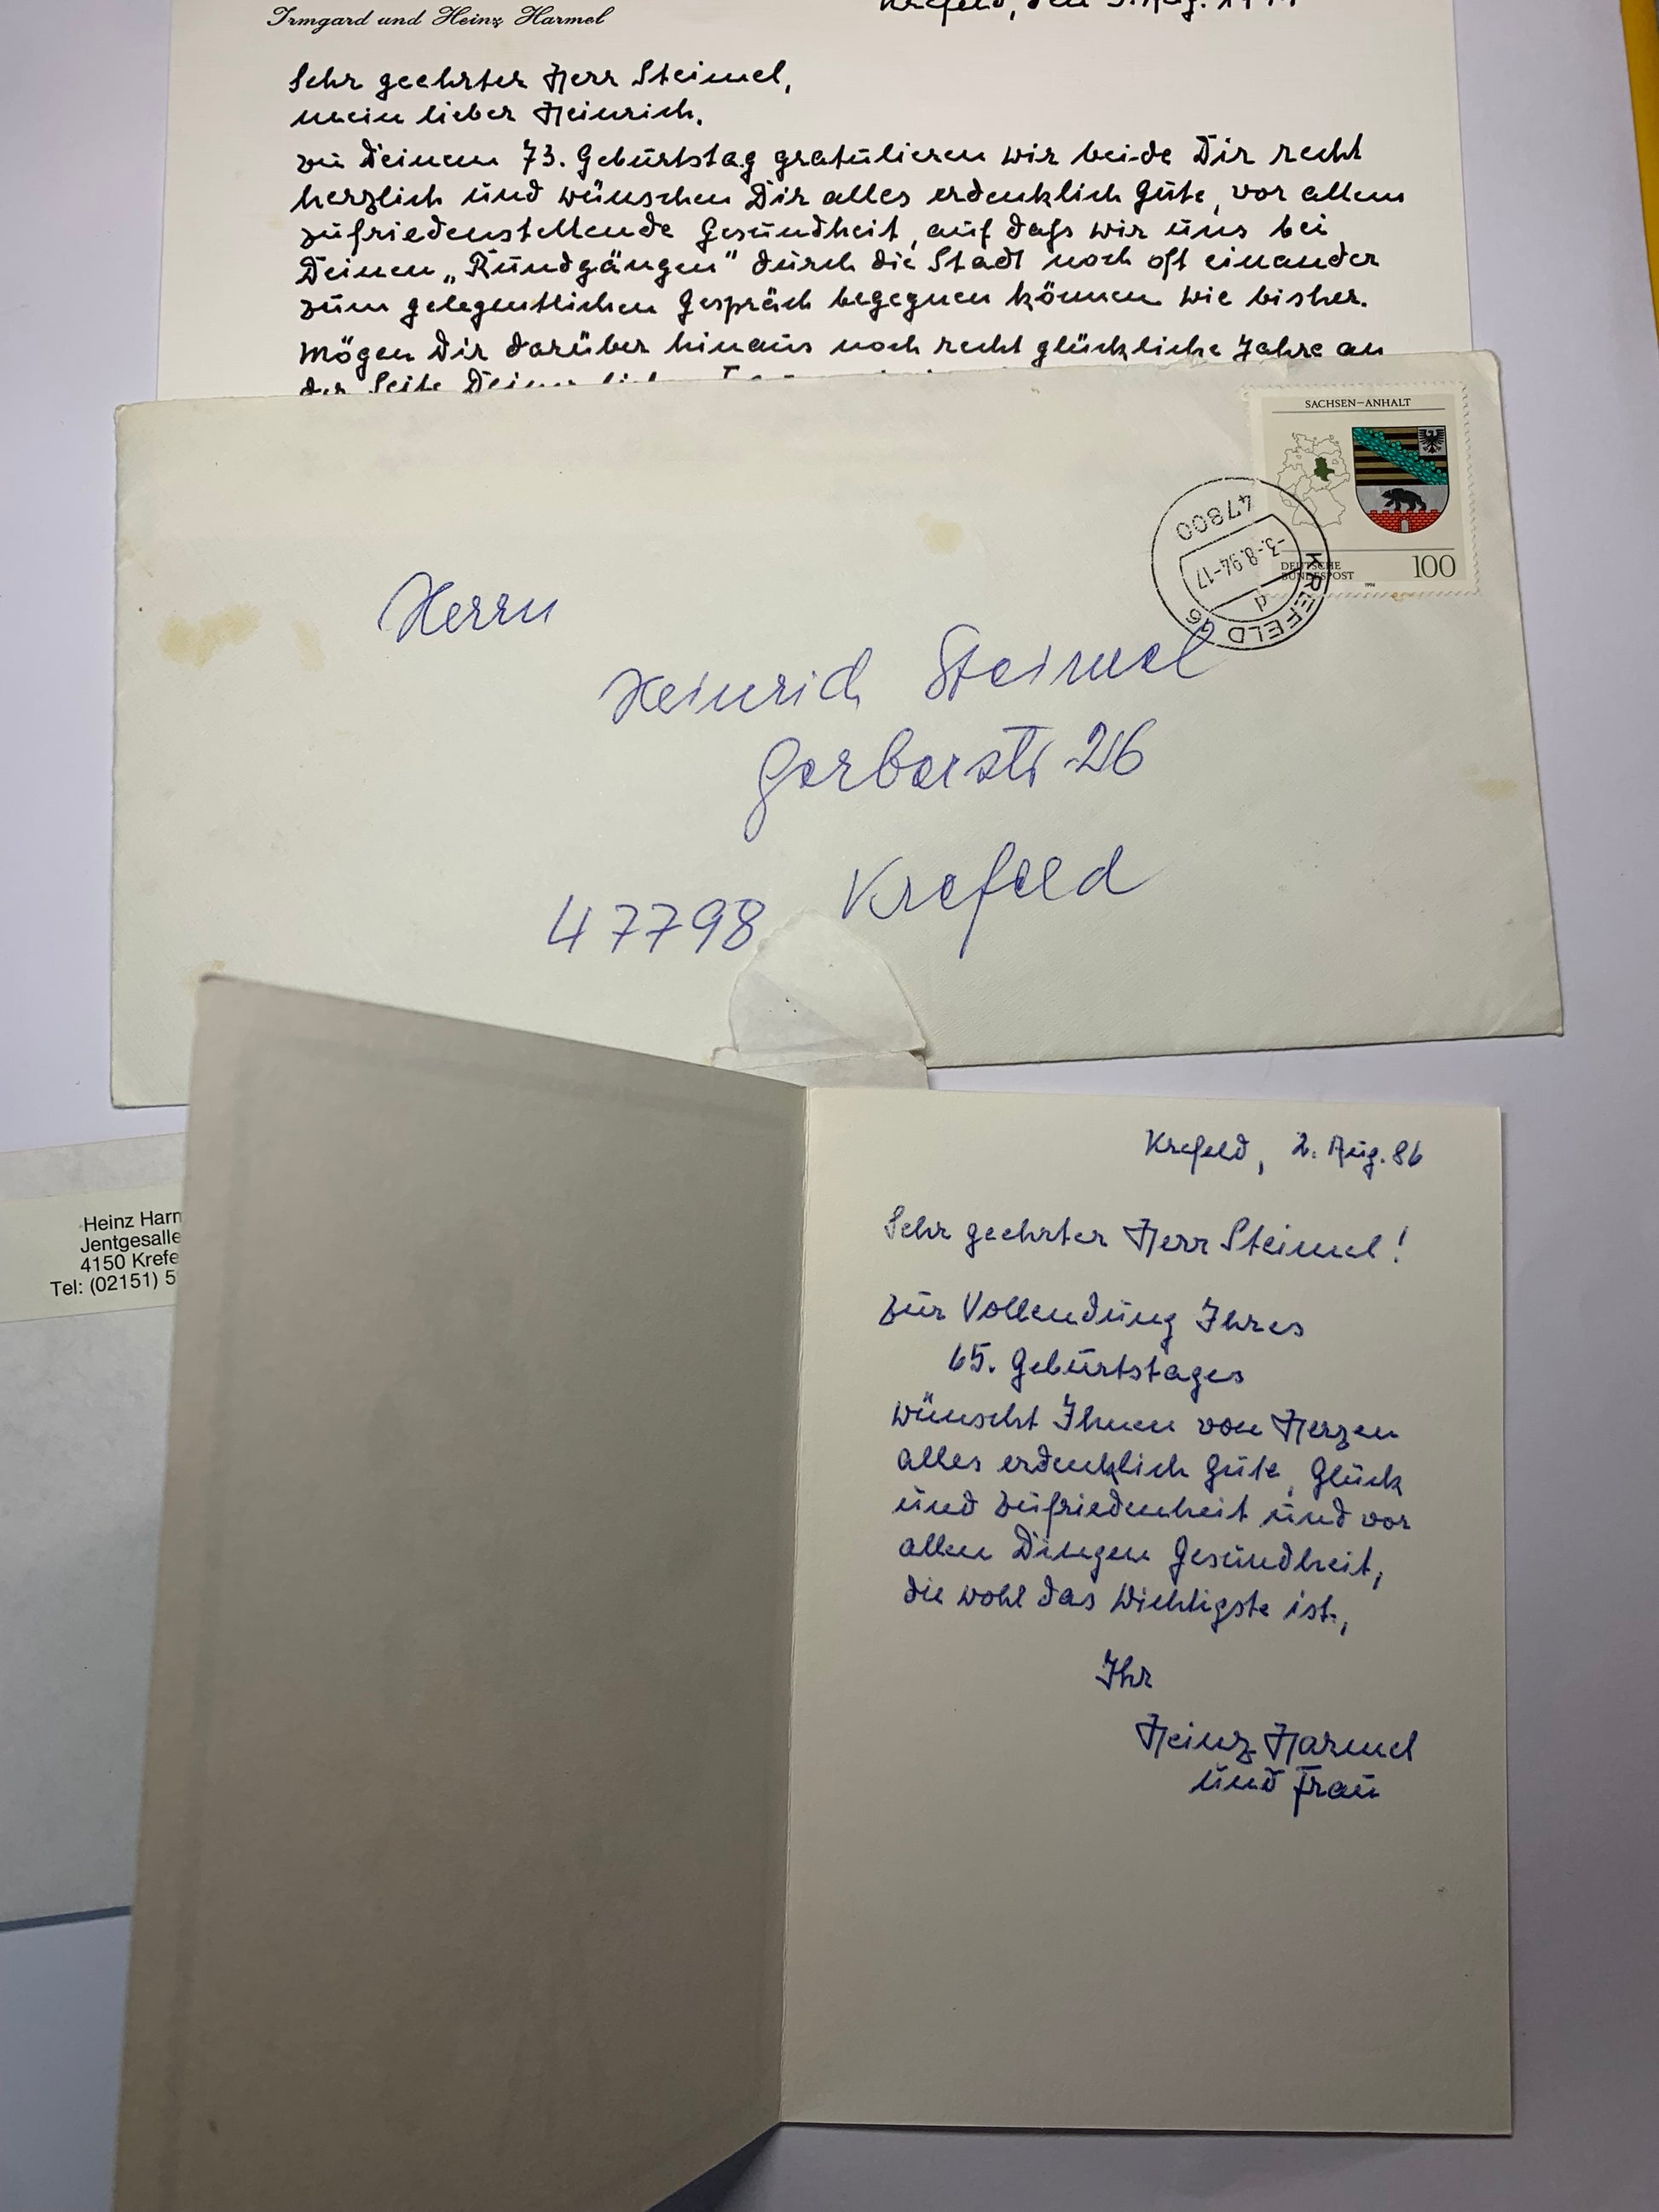 Irmgard und Heinz Harmel
Krefeld, den 3. Aug.
Sehr geehrter Herr Steimel,
mein lieber Heinrich.
zu Deinem 73. Geburtstag gratulieren wir beide Dir recht
herzlich und wünschen Dir alles erdenklich Gute, vor allem
zufriedenstellende Gesundheit, auf daß wir uns bei
Deinen „Rundgängen" durch die Stadt noch oft einander
zum gelegentlichen Gespräch begegnen können wie bisher.
Mögen Dir darüber hinaus noch recht glückliche Jahre an
der Seite Deiner
SACHSEN-ANHALT
DEUTSCHE
BUNDESPOST
100
1994
47800
-3.-8.94-17
d
KREFELD
Herrn
Heinrich Steimel
Gerberstr. 26
47798 Krefeld
Heinz Harm
Jentgesalle
4150 Krefe
Tel: (02151) 5
Krefeld, 2. Aug. 86
Sehr geehrter Herr Steimel!
Zur Vollendung Ihres
65. Geburtstages
wünscht Ihnen von Herzen
alles erdenklich Gute, Glück
und Zufriedenheit und vor
allen Dingen Gesundheit,
die wohl das Wichtigste ist.,
Ihr
Heinz Harmel
und Frau